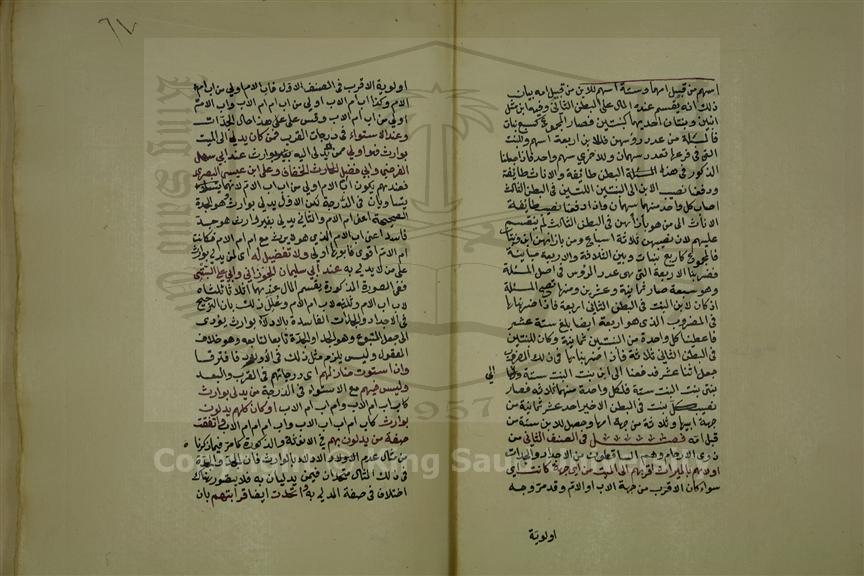 اسهم من قبيل امها وستة اسهم للابن من قبيل امه بيان
ذلك انه يقسم عنده المال على البطن الثاني وفيها بن مثل
ابنين وبنتان احديهما كبنتين فصار المجموع كسبع بنات
فالمسئلة من عدد رؤسهن فللابن اربعة اسهم وللبنت
التي في فرعها تعدد سهمان وللاخرى سهم واحد فاذا جعلنا
الذكور في هذه المسئلة البطن طائفة والاناث طائفة
ودفعنا نصيب الابن الى البنتين اللتين في البطن الثالث
اصاب كل واحد منهما سهمان واذا دفعنا نصيب طائفة
الاناث الى من هو بازائهن في البطن الثالث لم ينقسم
عليهم لان نصيبهن ثلاثة اسباع ومن بازائهن ابن وبنتان
فالمجموع كاربع بنات وبين الثلاثة والاربعة مباينة
فضربنا الاربعة التي هي عدد الرؤس في اصل المسئلة
وهو سبعة صار ثمانية وعشرين ومنها تصح المسئلة
اذ كان لابن البنت في البطن الثاني اربعة فاذا ضربناها
في المضروب الذي هو اربعة ايضا بلغ ستة عشر
فاعطينا كل واحدة من البنتين ثمانية وكان للبنتين
في البطن الثاني ثلاثة فاذا ضربناها في ذلك المضروب
حصل اثنا عشر فدفعنا الى ابن بنت البنت ستة والى
الى
بنتي بنت البنت ستة فلكل واحدة منهما ثلاثة فصار
نصيب كل بنت في البطن الاخير احد عشر ثمانية من
جهة ابيها وثلاثة من جهة امها وحصل للابن ستة من
قبل امه فصل في الصنف الثاني من
ذوي الارحام وهم الساقطون من الاجداد والجدات
اولاهم بالميراث اقربهم الى الميت من اي جهة كانت اي
سواء كان الاقرب من جهة الاب او الام وقد مر وجه
اولوية
٦٧
اولوية الاقرب في الصنف الاول فاب الام اولى من اب ام
الام وكذا اب ام الاب اولى من اب ام ام الاب واب الام
اولى من اب ام الاب وقس على هذا حال الجدات
وعند الاستواء في درجات القرب فمن كان يدلي الى الميت
بوارث فهو اولى ممن يدلي اليه بغير وارث عند ابي سهل
الفرضي وابي فضل الخفاف وعلي ابن عيسى البصري
فعندهم يكون اب ام الام اولى من اب اب الام لانهما
يتساويان في الدرجة لكن الاول يدلي بوارث هو الجدة
الصحيحة اعني ام الام والثاني يدلي بغير وارث هو جد
فاسد اعني اب الام الذي هو مع ام الام فكانت
ام الام اقوى فابوها اولى ولا تفضيل له اي لمن يدلي بوارث
على من لا يدلي به عند ابي سليمان الجوزجاني وابي علي البستي
ففي الصورة المذكورة يقسم المال عندهما اثلاثا ثلثاه
لاب اب الام وثلثه لاب ام الام وعلل ذلك بان الترجيح
في الاجداد والجدات الفاسدة بالادلاء بوارث يؤدي
الى جعل المتبوع وهو الجد او الجدة تابعا لتابعه وهو خلاف
المعقول وليس يلزم مثل ذلك في الاولاد فافترقا
واذا استوت منازلهم اي درجاتهم في القرب والبعد
وليس فيهم مع الاستواء في الدرجة من يدلي بوارث
كاب اب ام الاب وام اب ام الاب او كان كلهم يدلون
بوارث كاب ام اب اب الاب واب ام ام ام الاب واتفقت
صفة من يدلون بهم في الانوثة والذكورة كما مر فيما ذكرنا
من مثال عدم الادلاء بالوارث فان الجد والجدة
في ذلك المثال متحدان فيمن يدليان به فلا يتصور هناك
اختلاف في صفة المدلى به واتحدت ايضا قرابتهم بان